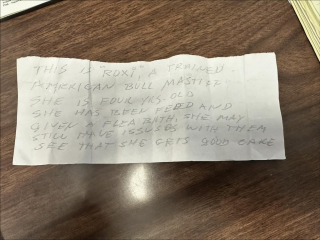 THIS IS "ROXY", A TRAINED
AMERXICAN BULL MASTIFF.
SHE IS FOUR YRS. OLD
SHE HAS BEEN FEED AND
GIVEN A FLEA BATH. SHE MAY
STILL HAVE ISSUSES WITH THEM
SEE THAT SHE GETS GOOD CARE